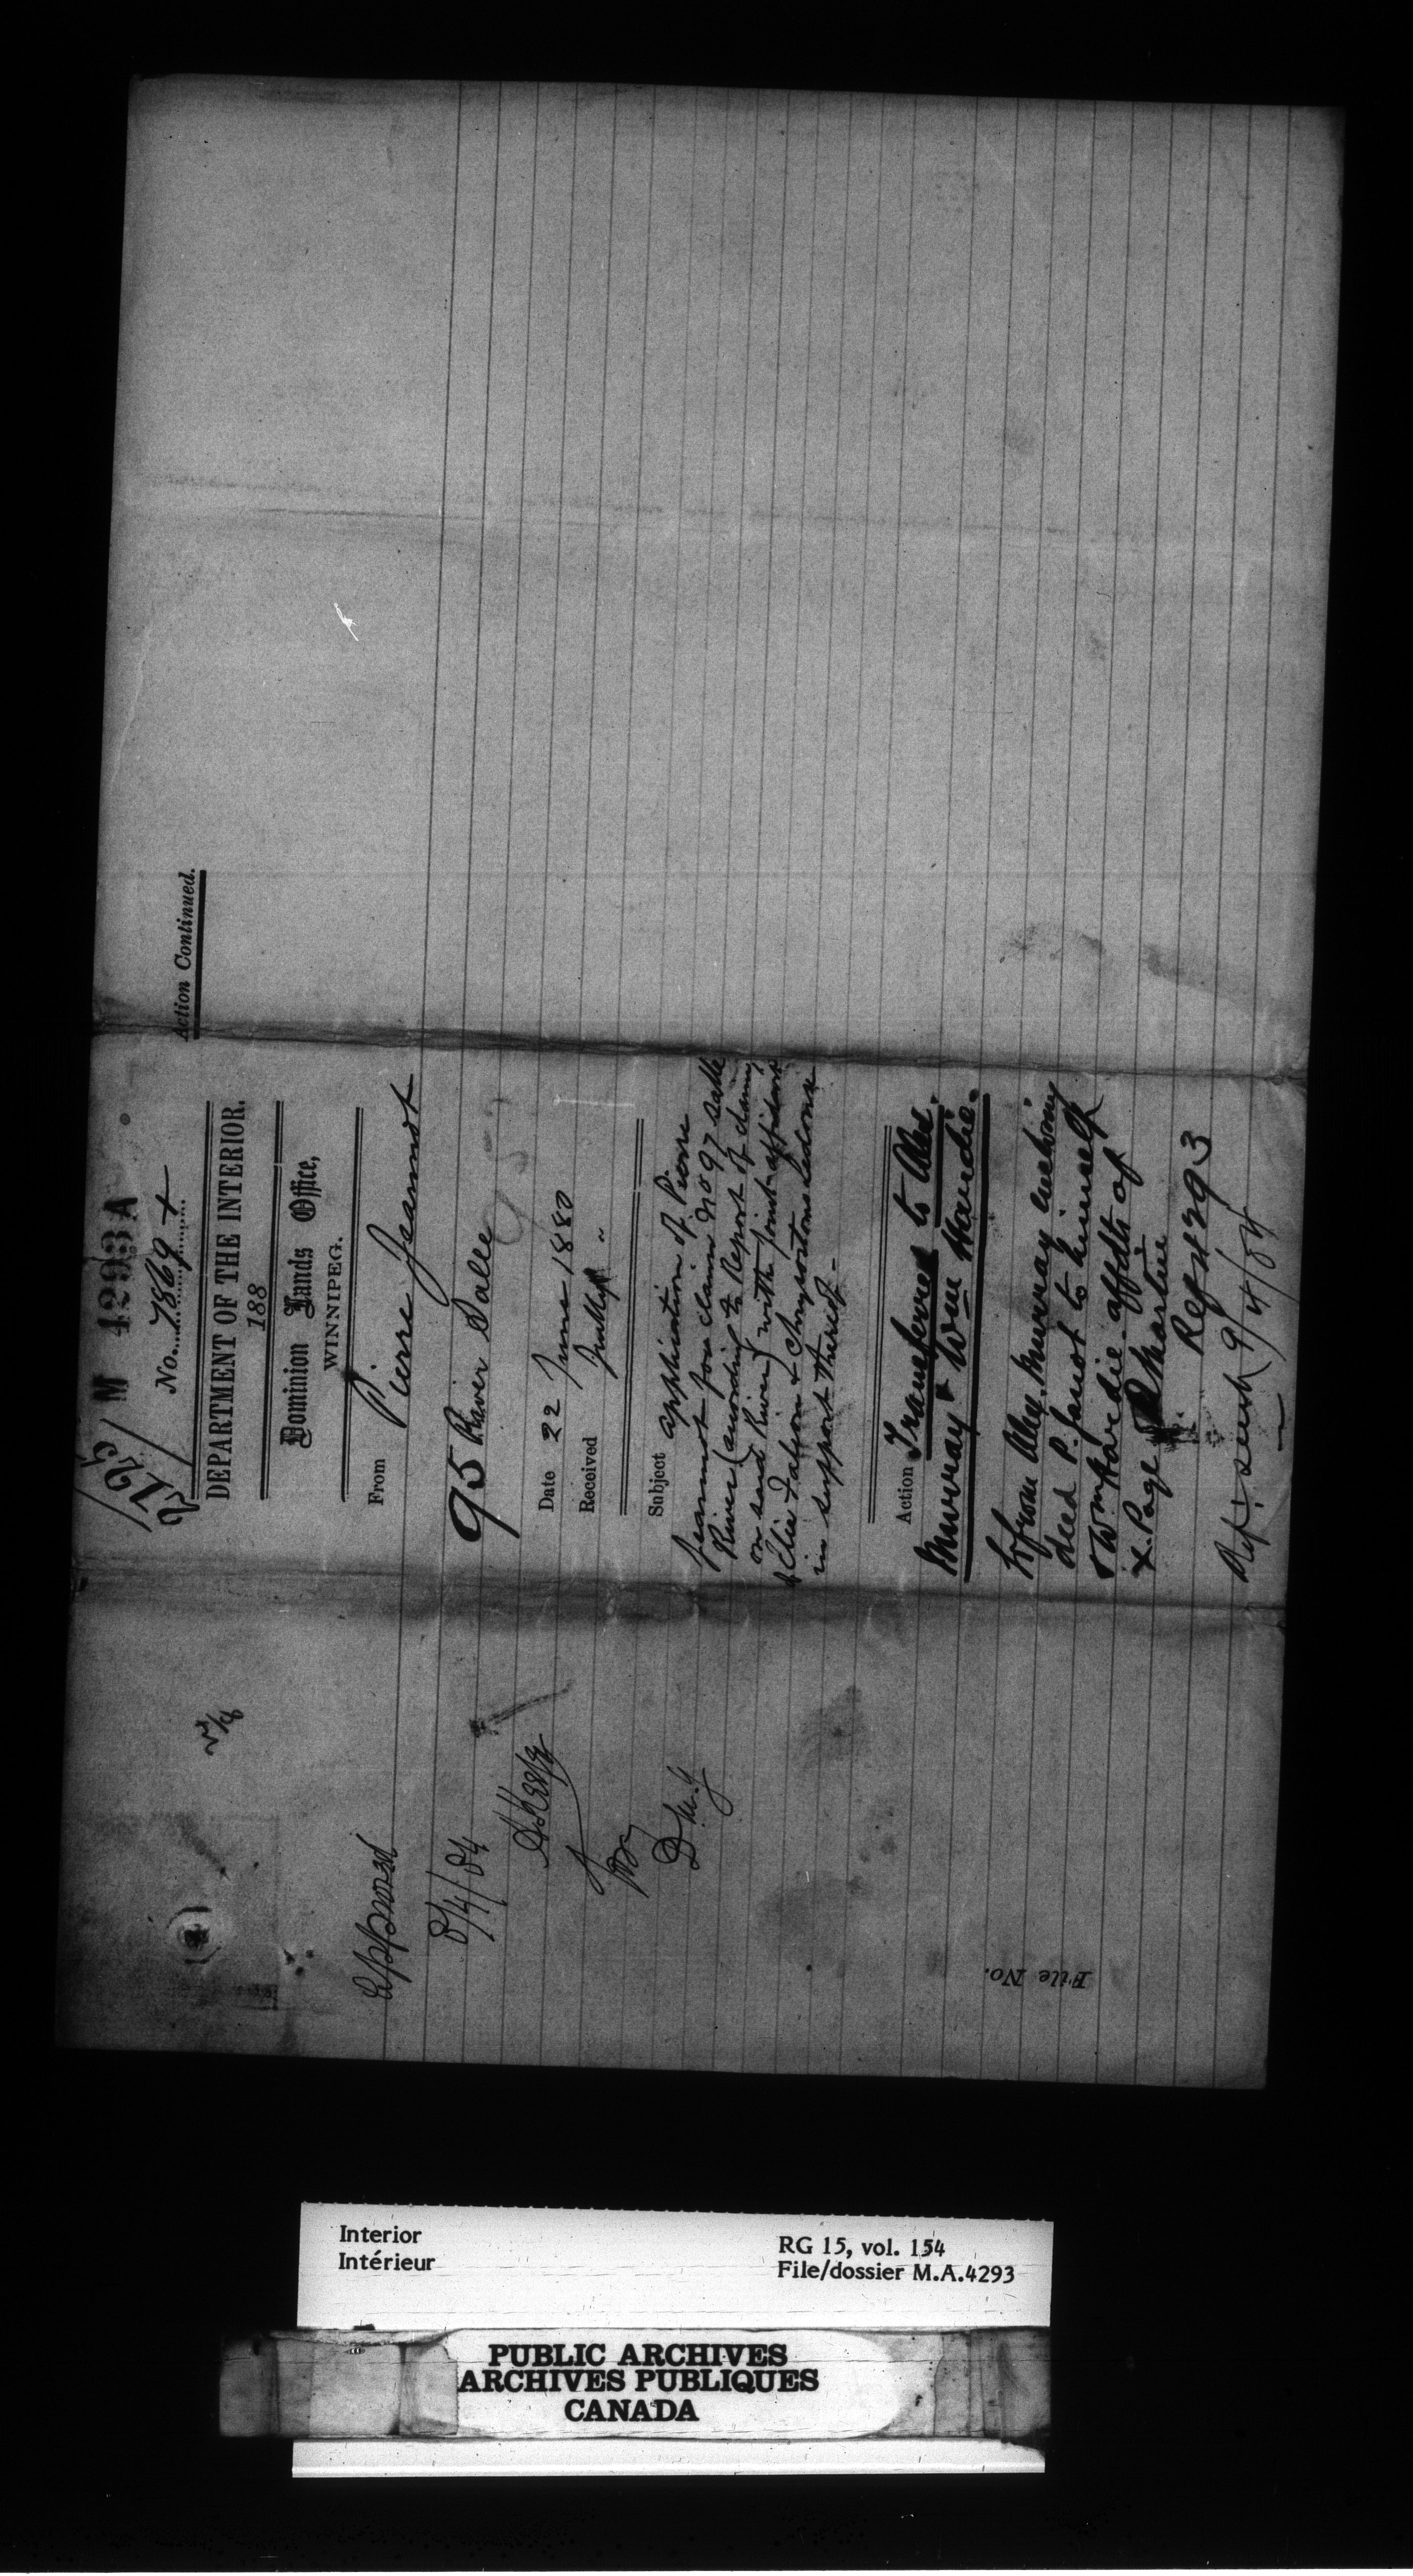 M 4293 A
No. 7869 +
DEPARTMENT OF THE INTERIOR.
188
Dominion Lands Office,
WINNIPEG.
From Pierre Jeannot
95 River Salle
Date 22 June 1880
Received
Subject application of Pierre
Jeannot for claim No 97 Salle
River (according to Report of claims
on said River) with joint affidavit
in support thereof -
Action Transferred to Alex.
Murray & Wm Hardie.
from Alex. Murray enclosing
deed P. Janot to himself
& Wm Hardie. affdts of
X. Page & Martin
Ref 4293
9/4/84
Action Continued.
Approved
8/4/84
File No.
Interior
Intérieur
RG 15, vol. 154
File/dossier M.A.4293
PUBLIC ARCHIVES
ARCHIVES PUBLIQUES
CANADA